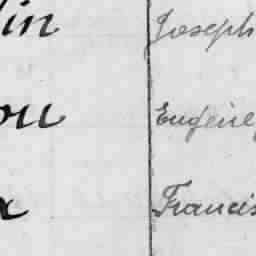 in Joseph
ou Eugene
x Francis